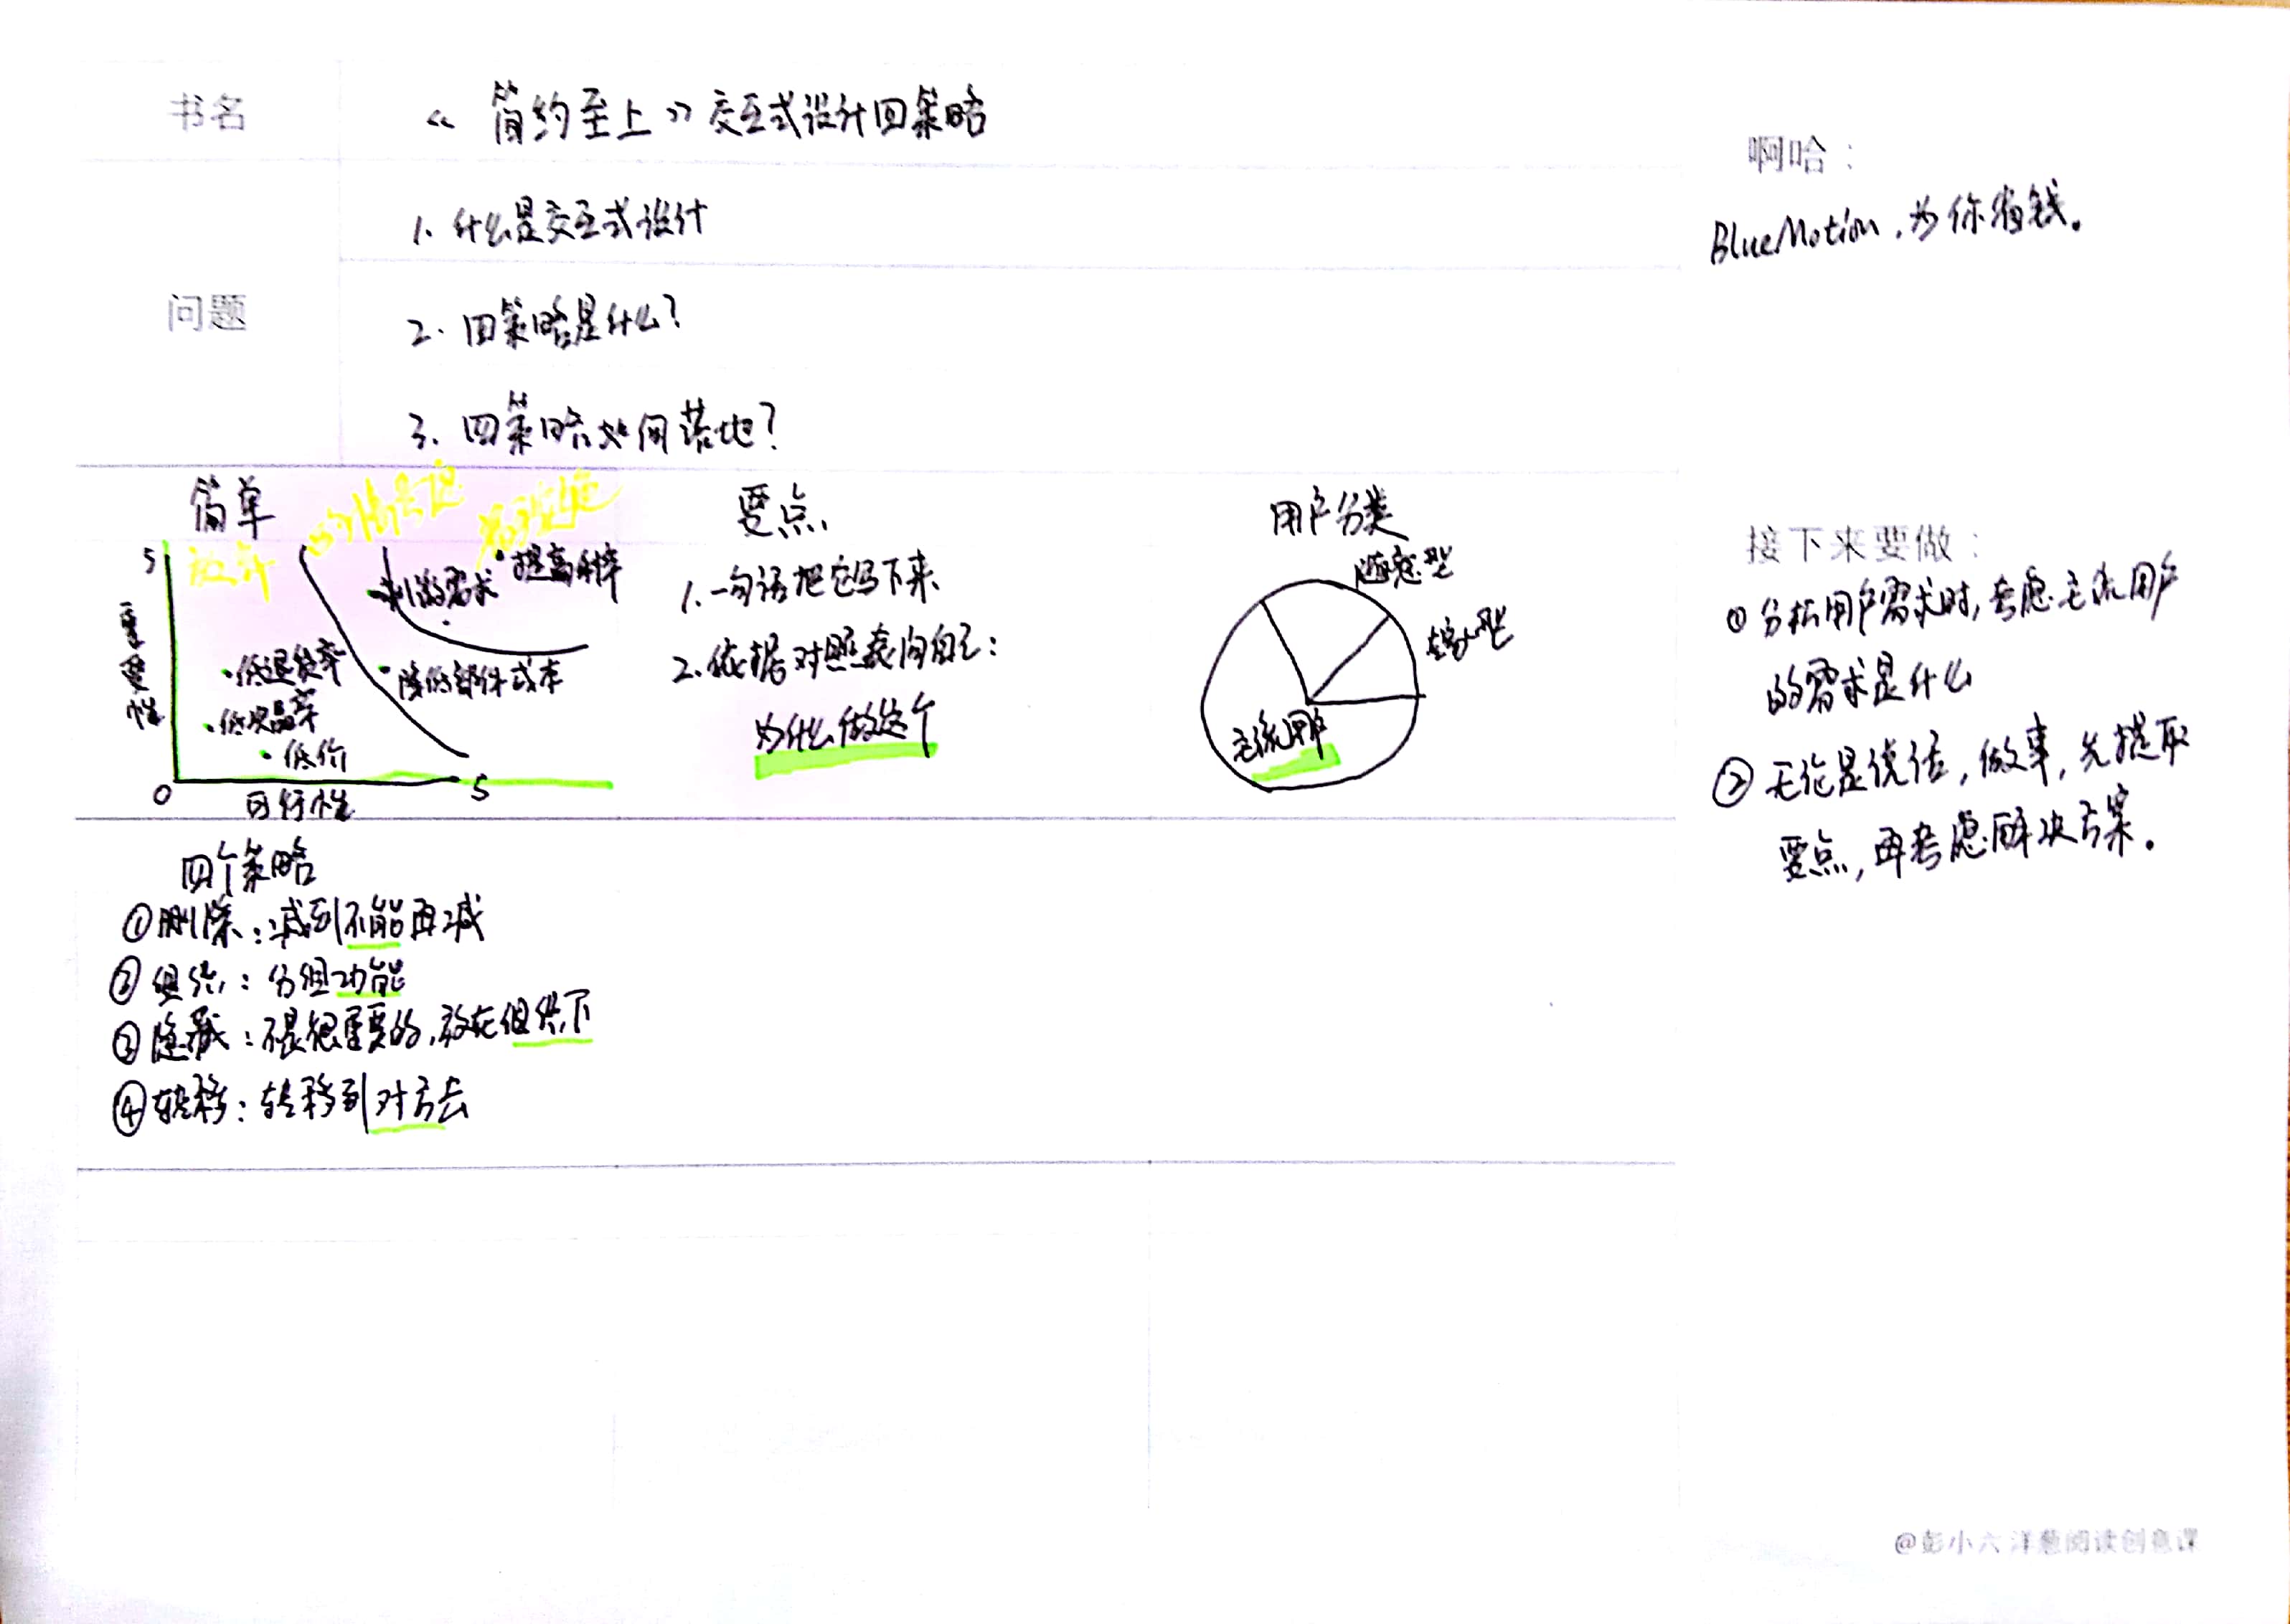 书名
《简约至上》交互式设计四策略
问题
1. 什么是交互式设计
2. 四策略是什么?
3. 四策略如何落地?
简单
放弃
5
重要性
刺激需求
提高利率
低退货率
降低部件成本
低次品率
低价
0
5
可行性
要点
1. 一句话把它写下来
2. 依据对照表问自己:
为什么做这个
用户分类
随意型
专家型
主流用户
四个策略
①删除:减到不能再减
②组织:分组功能
③隐藏:不是很重要的,放在组织下
④转移:转移到对方去
啊哈:
BlueMotion,为你省钱。
接下来要做:
① 分析用户需求时,考虑主流用户
的需求是什么
② 无论是说话,做事,先提取
要点,再考虑解决方案。
@彭小六 洋葱阅读创意课